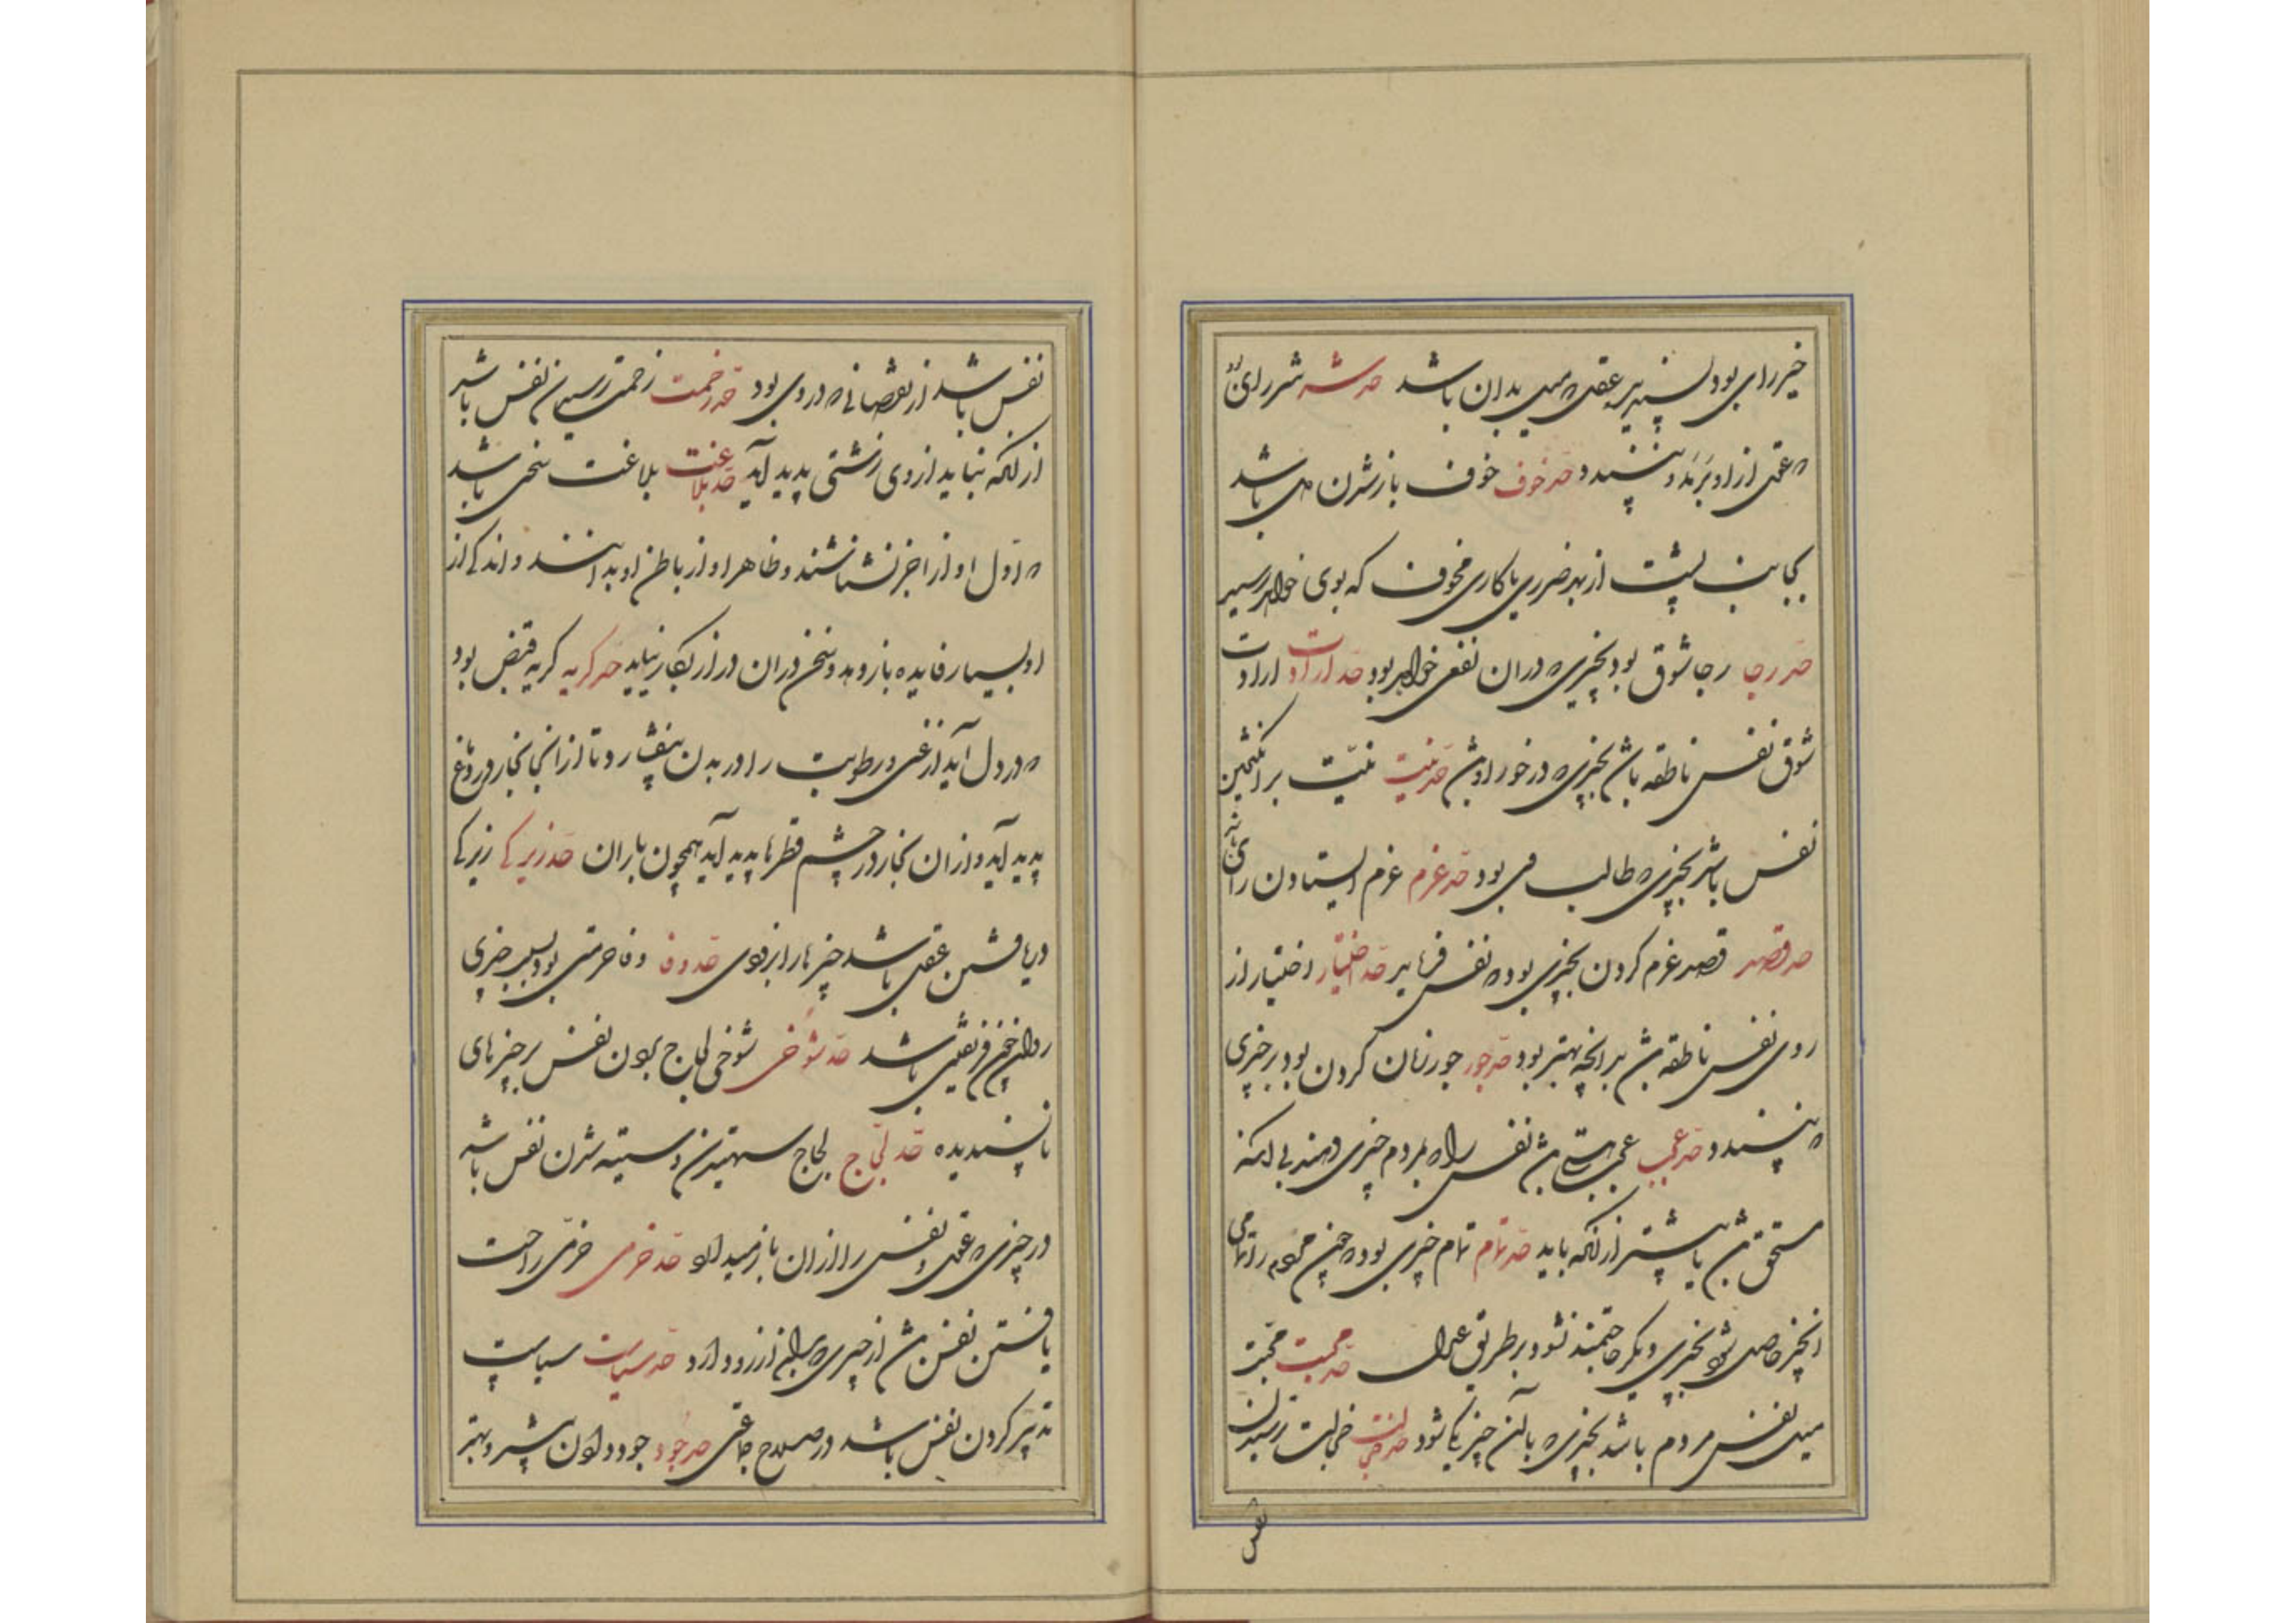 خیر رای بود پسندیده عقل که میل بدان باشد حد شر شر رای بود
که عقل از او برمد و نپسندد حد خوف خوف باز شدن دل باشد
بجانب پشت از بهر ضرری یا کاری مخوف که بوی خواهد رسید
حد رجا رجا شوق بود بچیزی که در ان نفعی خواهد بود حد ارادت ارادت
شوق نفس ناطقه باشد بچیزی که در خور او باشد حد نیت نیّت برانگیختن
نفس باشد بچیزی که طالب وی بود حد عزم عزم ایستادن رای باشد
حد قصد قصد عزم کردن بچیزی بود که نفس فرماید حد اختیار اختیار از
روی نفس ناطقه باشد بر آنچه بهتر بود حد جور جور زیان کردن بود بر چیزی
که نپسندد حد عجب عجب هستی باشد نفس را که بمردم چیزی دهند بی آنکه
مستحق باشد یا بیشتر از آنکه باید حد تمام تمام چیزی بود که چون مردم را تمامی
آنچیز حاصل شود بچیزی دیگر حاجتمند نشود بر طریق عدل حد محبت محبّت
میل نفس مردم باشد بچیزی که بآن چیز یکی شود حد خجالت خجالت ترسیدن
نفس
نفس باشد از نقصانی که در وی بود حد زحمت زحمت ترسیدن نفس باشد
از آنکه نباید از وی زشتی پدید آید حد بلاغت بلاغت سخنی باشد
که اوّل او از آخر نشناسند و ظاهر او از باطن او بدانند و اندکی از
او بسیار فایده باز دهد و سخن دران دراز بکار نیاید حد گریه گریه قبض بود
که در دل آید از غمی و رطوبت را در بدن بیفشارد و تا از انجا بخار در دماغ
پدید آید و از ان بخار در چشم قطرها پدید آید همچون باران حد زیرکی زیرکی
دریافتن عقل باشد چیزها را بزودی حد وفا وفا حرمتی بود بسبب چیزی
حد شوخی شوخی لجاج بودن نفس بر چیزهای
ناپسندیده حد لجّاج لجاج ستهیدن و ستیهیدن نفس باشد
در چیزی که عقل نفس را از ان باز میدارد حد خرمی خرّمی راحت
یافتن نفس باشد از چیزی که بدان آرزو دارد حد سیاست سیاست
تدبیر کردن نفس باشد در صلاح جماعتی حد جود جود دادن بیشتر و بهتر